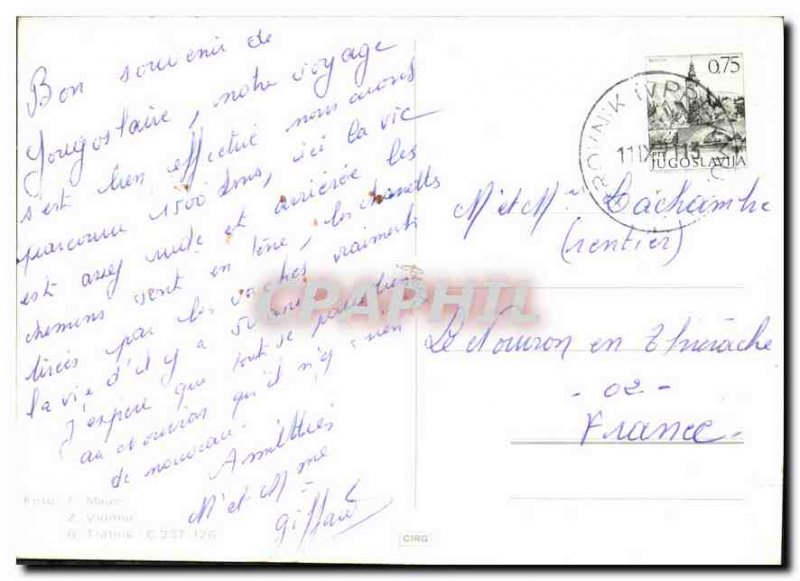 Bon souvenir de
Yougoslavie, notre voyage
s'est bien effectué nous avons
parcouru 1500 kms, ici la vie
est assez rude et arriérée les
chemins sont en terre, les charrettes
tirées par les vaches vraiment
la vie d'il y a 50 ans
J'espère que tout se passe bien
au et ouvrons qu'il n'y a rien
de nouveau.
Amitiés
M et Mme
Giffard
0,75
JUGOSLAVIJA
11 IX 13
M et Mme Cachambre
(rentier)
Le Nouvion en Thiérache
- 02 -
France.
CPAPHIL
Foto: F. Mauer
Z. Vidmar
B. Trátnik C 237 126
CIRG